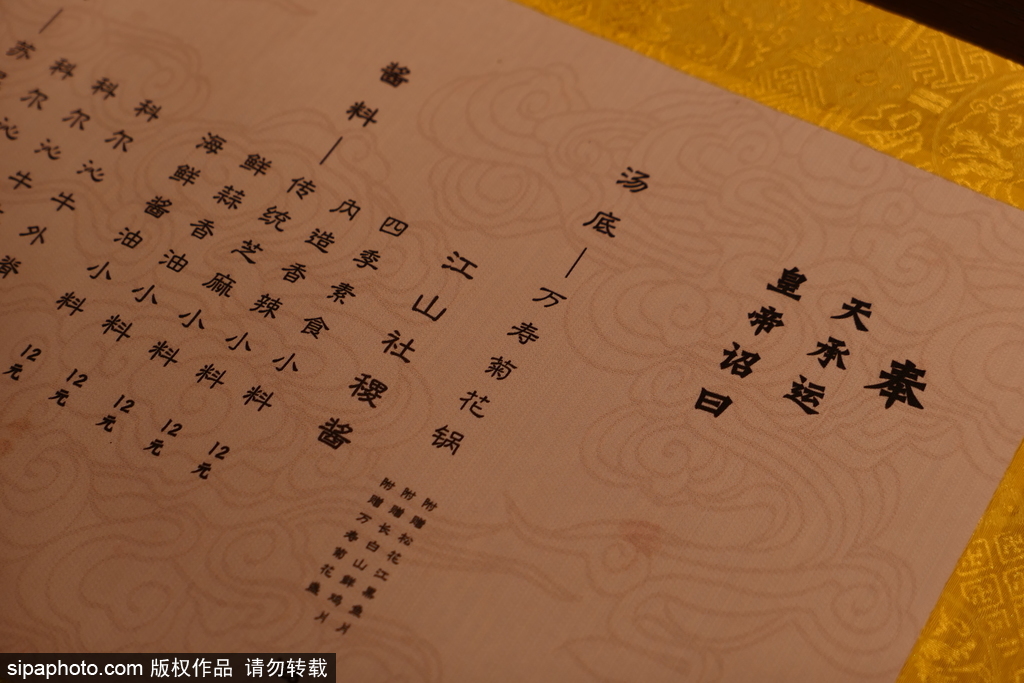 奉
天承运
皇帝诏曰
汤底—万寿菊花锅
附赠松花江黑鱼片
附赠长白山鲜鸡片
附赠万寿菊花
江山社稷酱
酱料—
四季素食小料 12元
内造香辣小料 12元
传统芝麻小料 12元
鲜蒜香油小料 12元
海鲜酱油小料 12元
科尔沁牛外脊
科尔沁牛
科尔沁
苏
sipaphoto.com 版权作品 请勿转载